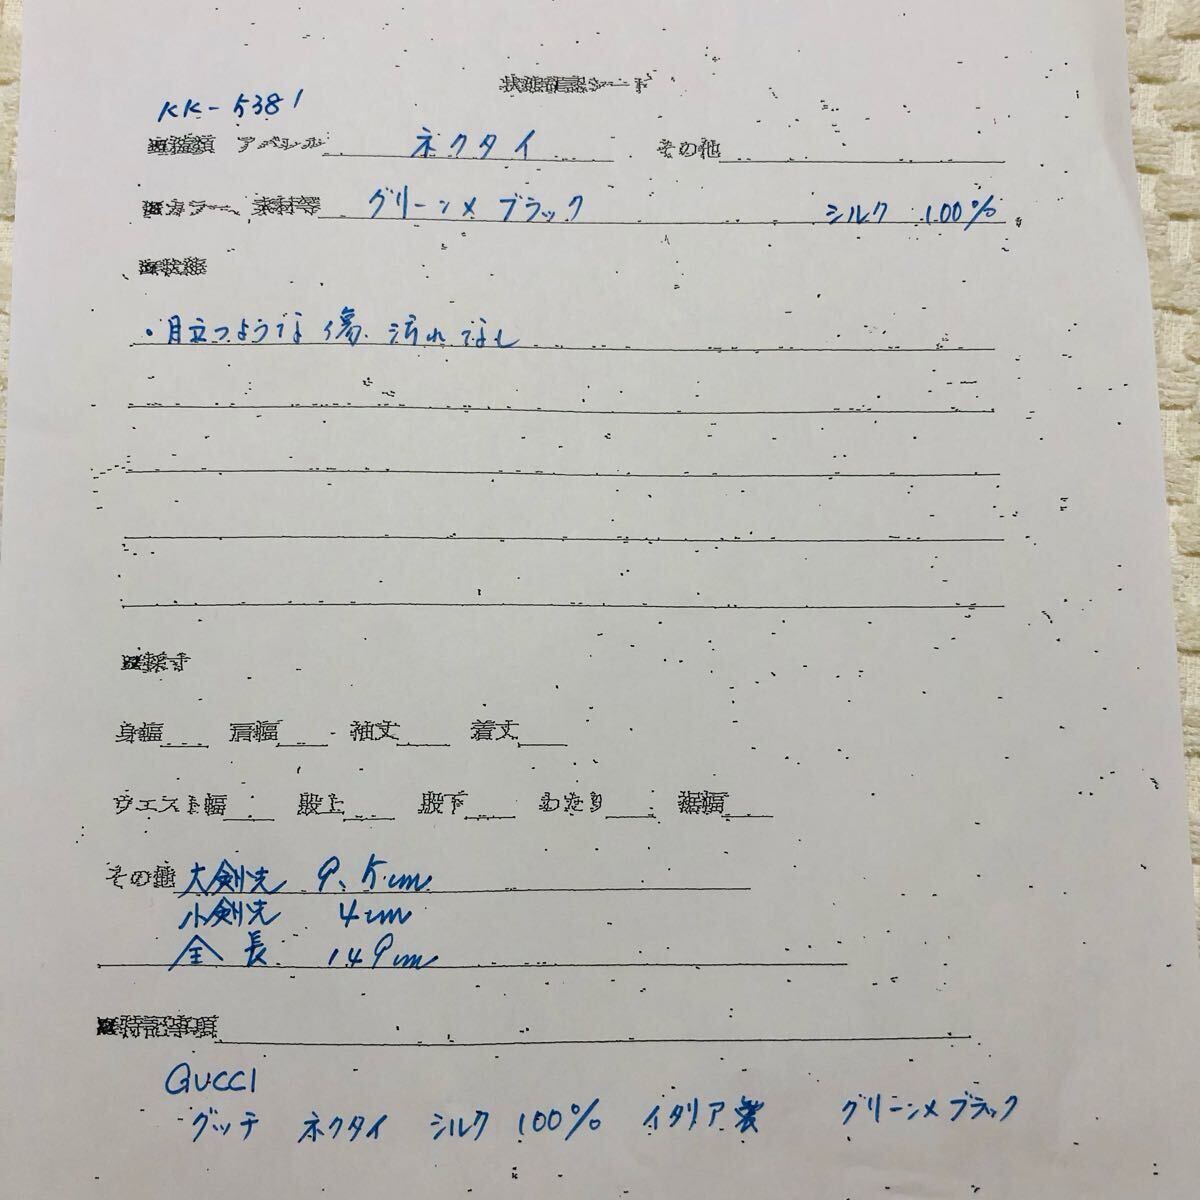 状態確認シート
KK-5381
※種類 アパレル ネクタイ その他
※カラー、素材等 グリーン×ブラック シルク 100%
※状態
・目立つような傷、汚れなし
※採寸
身幅 肩幅 袖丈 着丈
ウエスト幅 股上 股下 わたり 裾幅
その他 大剣先 9.5cm
小剣先 4cm
全長 149cm
※特記事項
GUCCI
グッチ ネクタイ シルク 100% イタリア製 グリーン×ブラック